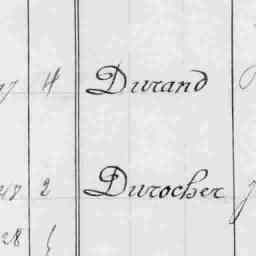 4 Durand
2 Durocher
28